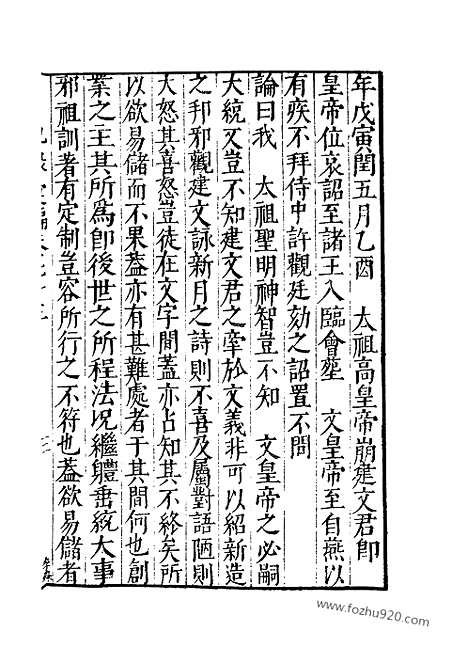 年戊寅閏五月乙酉　太祖高皇帝崩建文君卽
皇帝位哀詔至諸王入臨會塟　文皇帝至自燕以
有疾不拜侍中許觀廷劾之詔置不問
論曰我　太祖聖明神智豈不知　文皇帝之必嗣
大統又豈不知建文君之牽於文義非可以紹新造
之邦邪觀建文詠新月之詩則不喜及屬對語陋則
大怒其喜怒豈徒在文字間蓋亦占知其不終矣所
以欲易儲而不果葢亦有甚難處者于其間何也創
業之主其所爲卽後世之所程法况繼體垂統大事
邪祖訓著有定制豈容所行之不符也葢欲易儲者
www.fozhu920.com